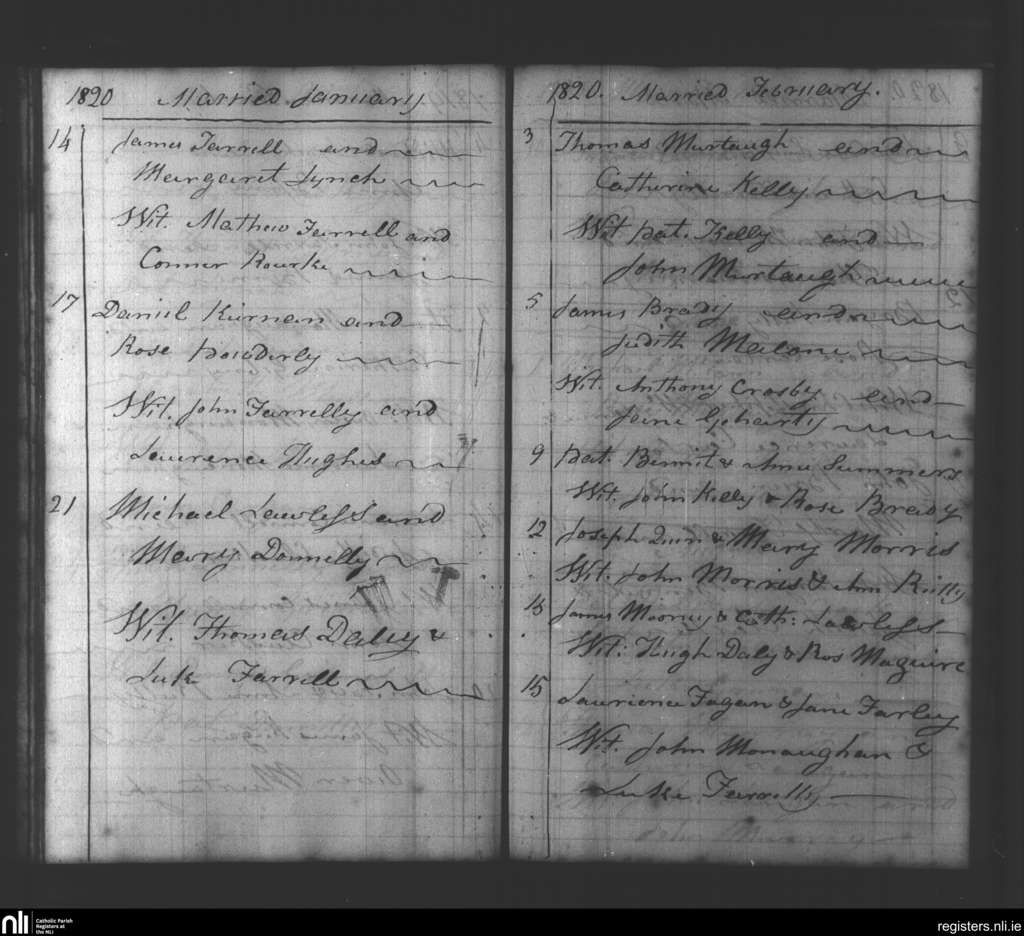 1820 Married January
14 James Farrell and
Margaret Lynch
Wit. Mathew Farrell and
Conner Rourke
17 Daniel Kiernan and
Rose Powderly
Wit. John Farrelly and
Lawrence Hughes
21 Michael Lawless and
Mary Donnelly
Wit. Thomas Daley &
Luke Farrell
1820. Married February.
3 Thomas Murtaugh and
Catherine Kelly
Wit Pat. Kelly and
John Murtaugh
5 James Brady and
Judith Malone
Wit. Anthony Crosby and
Jane Goharty
9 Pat. Bennit & Anne Summers
Wit. John Kelly & Rose Brady
12 Joseph Quin & Mary Morris
Wit. John Morris & Ann Reilly
James & Cath: Lawless
Wit: Hugh Daly & Ros Maguire
15 Laurience Fagan & Jane Farley
Wit. John Monaughan &
Luke Farrelly
nli
Catholic Parish
Registers at
the NLI
registers.nli.ie